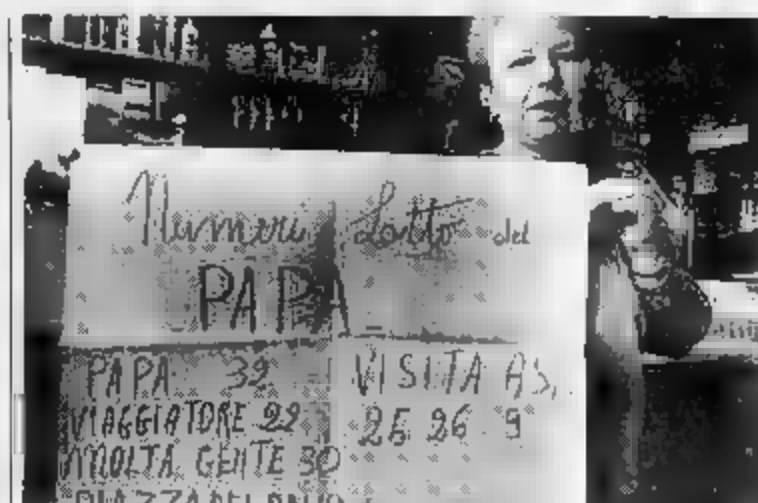 Numeri Lotto del
PAPA
PAPA 32
VIAGGIATORE 22
MOLTA GENTE 30
VISITA A S.
25 26 9